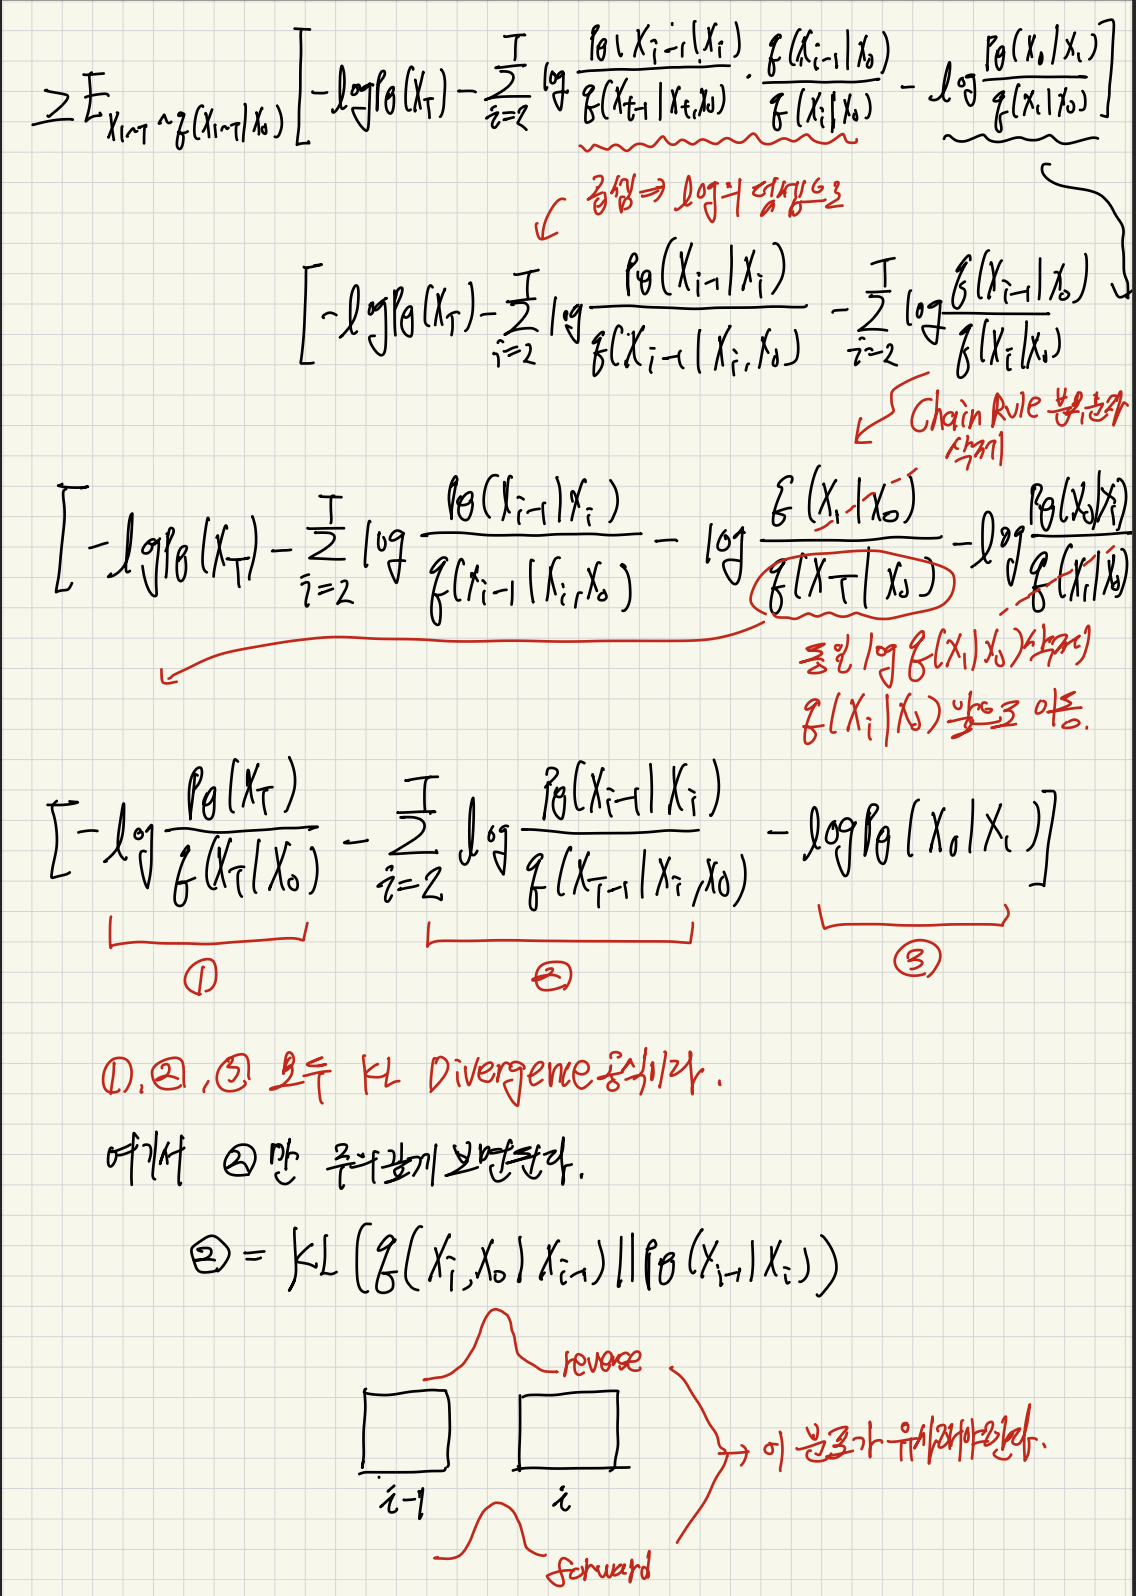 ≥ E_{X_{1~T} ~ q(X_{1~T}|X_0)} [ -log P_θ(X_T) - Σ_{i=2}^{T} log P_θ(X_{i-1}|X_i) / q(X_{t-1}|X_t, X_0) · q(X_{i-1}|X_0) / q(X_i|X_0) - log P_θ(X_0|X_1) / q(X_1|X_0) ]
곱셈 ⇒ log의 덧셈으로
[ -log P_θ(X_T) - Σ_{i=2}^{T} log P_θ(X_{i-1}|X_i) / q(X_{i-1}|X_i, X_0) - Σ_{i=2}^{T} log q(X_{i-1}|X_0) / q(X_i|X_0)
Chain Rule 분모,분자
삭제
[ -log P_θ(X_T) - Σ_{i=2}^{T} log P_θ(X_{i-1}|X_i) / q(X_{i-1}|X_i, X_0) - log q(X_1|X_0) / q(X_T|X_0) - log P_θ(X_0|X_1) / q(X_1|X_0)
동일 log q(X_1|X_0) 삭제
q(X_i|X_0) 앞으로 이동.
[ -log P_θ(X_T) / q(X_T|X_0) - Σ_{i=2}^{T} log P_θ(X_{i-1}|X_i) / q(X_{T-1}|X_i, X_0) - log P_θ(X_0|X_1) ]
① ② ③
①, ②, ③ 모두 KL Divergence 공식이다.
여기서 ②만 주의깊게 보면된다.
② = KL(q(X_i, X_0|X_{i-1}) || P_θ(X_{i-1}|X_i))
reverse
i-1 i
→ 이 분포가 유사해야한다.
forward